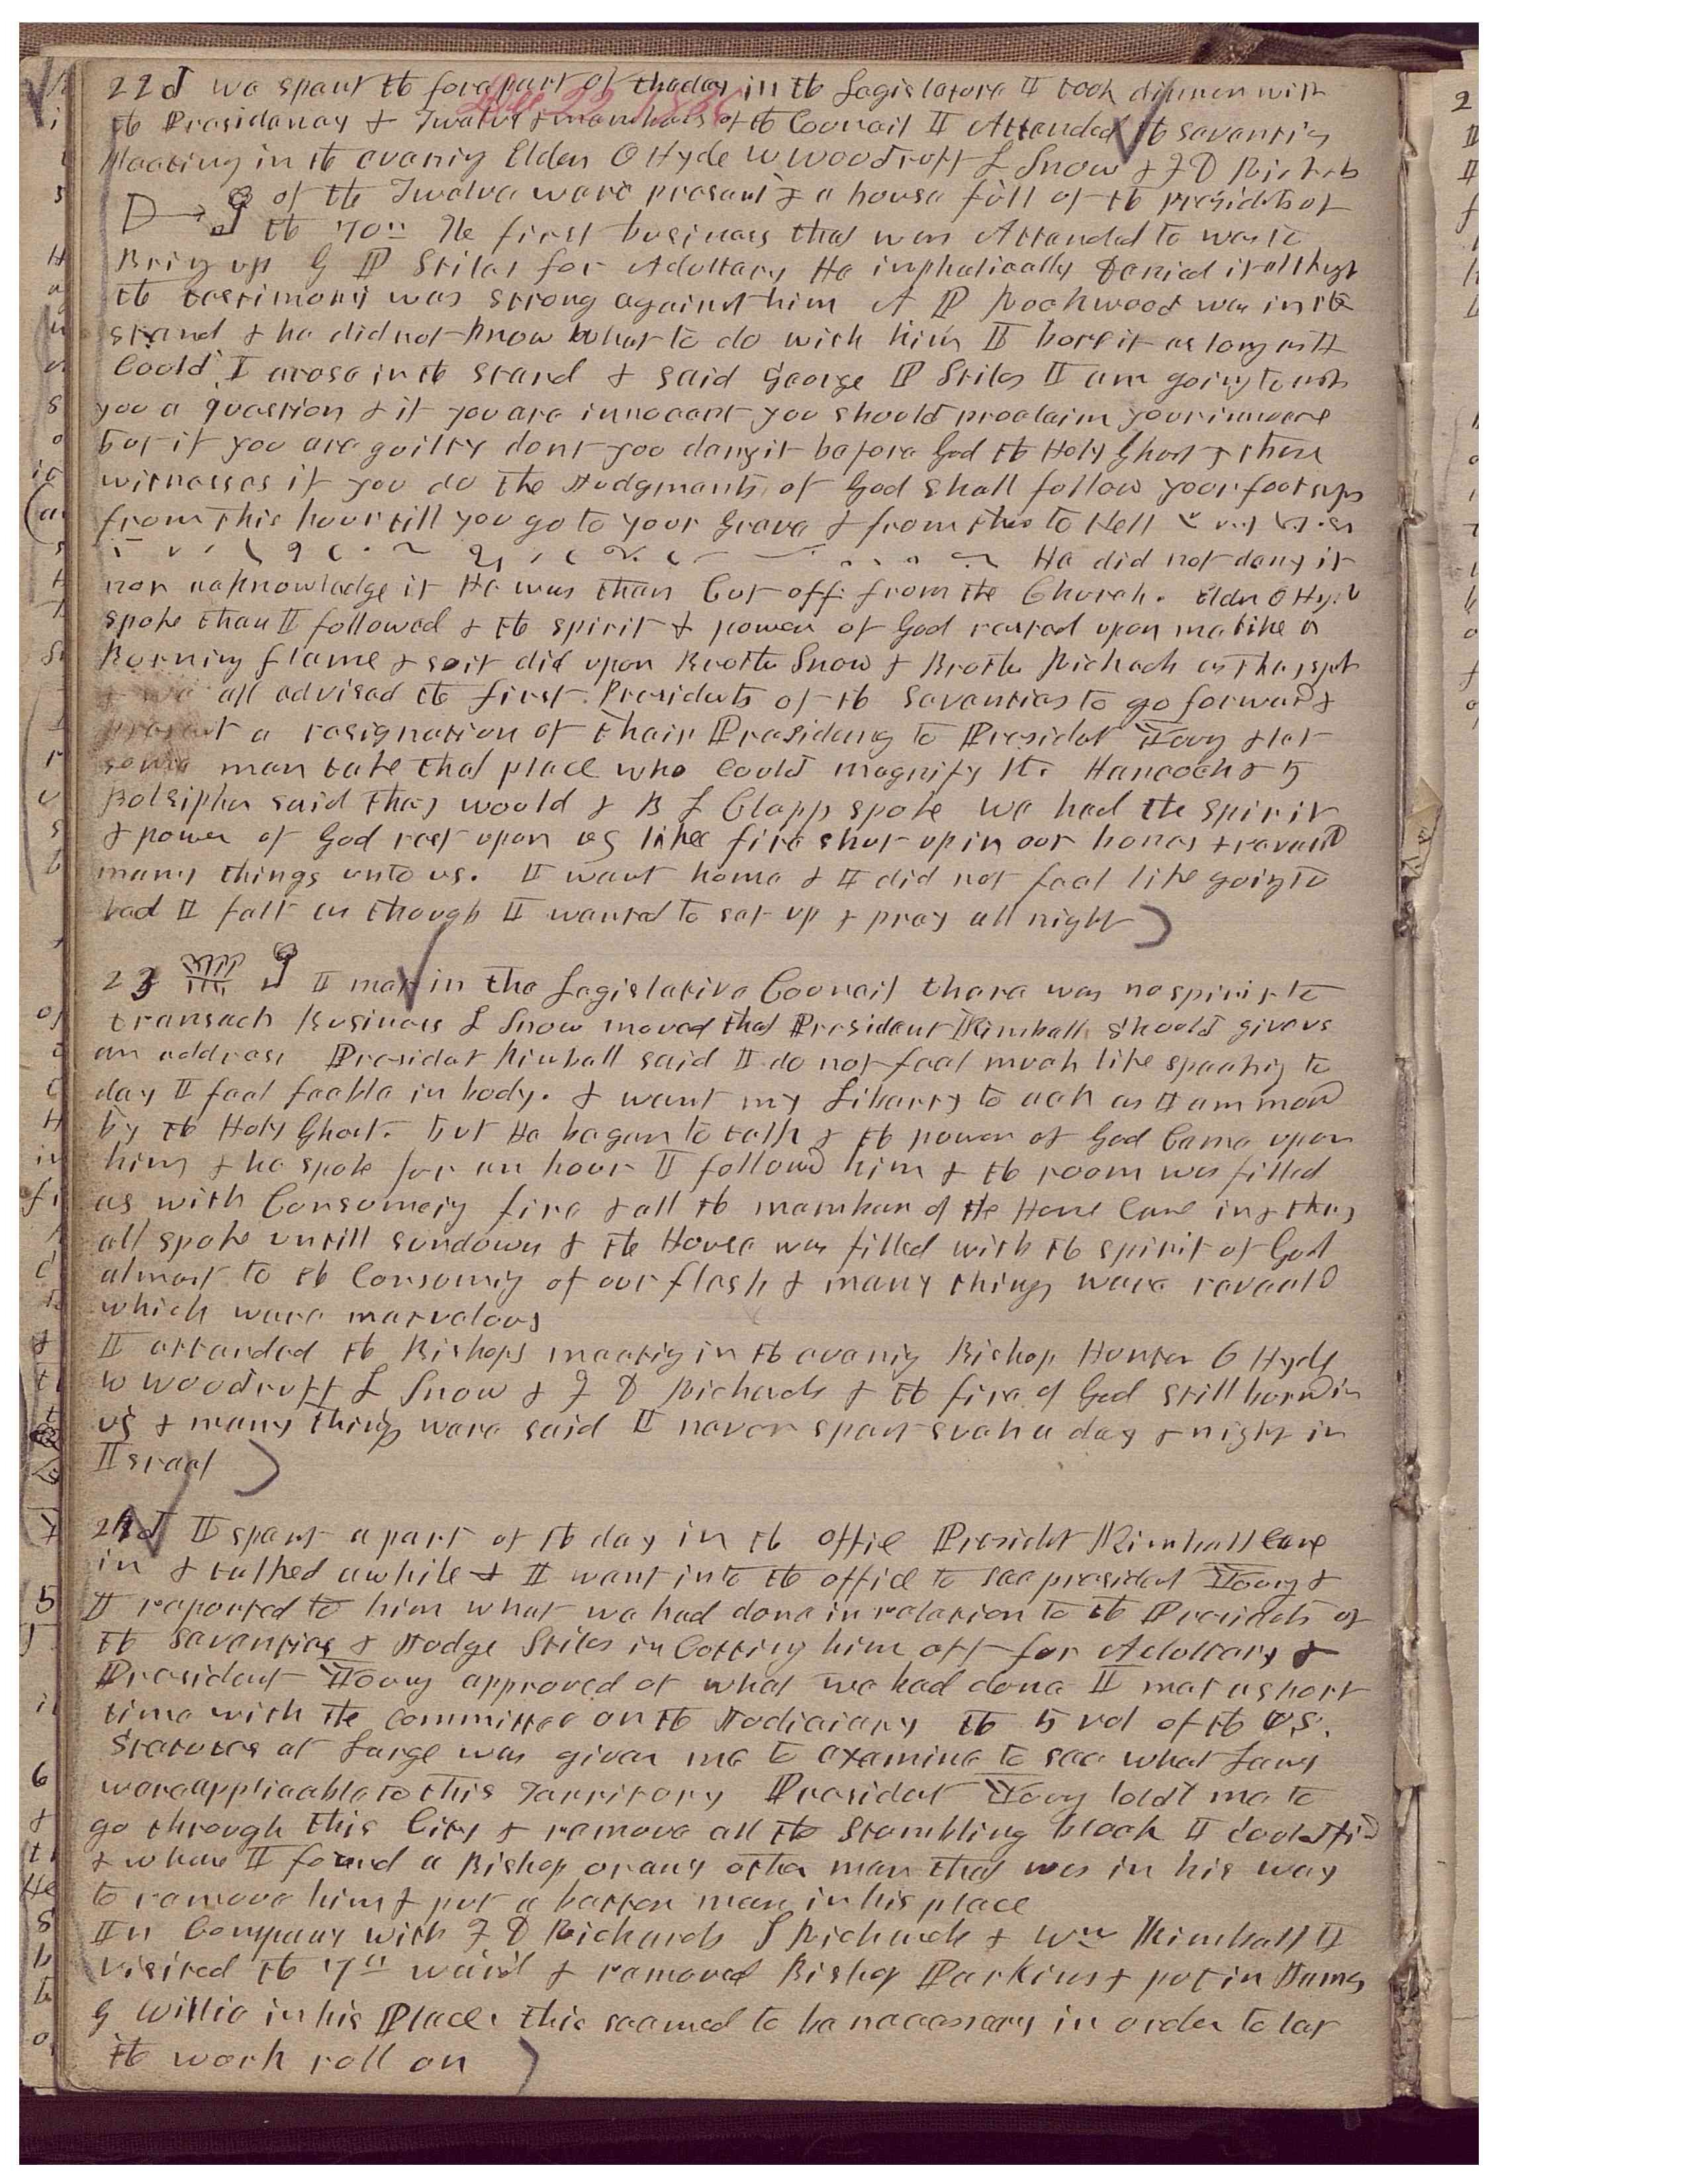 22d we spent the forepart of the day in the Legislature I took dinner with
Dec 22, 1856
the Presidency & Twelve & members of the Council I Attended the seventies
Meeting in the evening Elder O Hyde W Woodruff L Snow & F D Richards
of the Twelve were present & a house full of the presidets of
the 70" The first business that was Attended to was to
Bring up G P Stiles for Adultery He inphatically denied it althgh
the testimony was strong against him A P Rockwood was in the
stand & he did not know what to do with him I bore it as long as I
Could I arose in the stand & said George P Stiles I am going to ask
you a question & if you are innocent you should proclaim your innocence
but if you are guilty dont you deny it before God the Holy Ghost & these
witnesses if you do the Judgments of God shall follow your footsteps
from this hour till you go to your Grave & from this to Hell
He did not deny it
nor acknowledge it He was then Cut off from the Church. Elder O Hyde
spoke then I followed & the spirit & power of God rested upon me like a
Burning flame & so it did upon Brother Snow & Brother Richards as they spoke
& we all advised the first Presidents of the seventies to go forward &
present a resignation of their Presidency to President Young & let
some man take that place who could magnify it. Hancock & Z
Pulsipher said they would & B L Clapp spoke we had the spirit
& power of God rest upon us like fire shut up in our bones & reveald
many things unto us. I went home & I did not feel like going to
bed I felt as though I wanted to set up & pray all night
23 I met in the Legislative Council there was no spirit to
transact Business L Snow moved that President Kimball should give us
an address President Kimball said I do not feel much like speaking to
day I feel feeble in body. & want my Liberty to act as I am moved
by the Holy Ghost. but He began to talk & the power of God Came upon
him & he spoke for an hour I followed him & the room was filled
as with Consumeing fire & all the members of the House Came in & they
all spoke untill sundown & the House was filled with the spirit of God
almost to the Consuming of our flesh & many things were reveald
which were marvelous
I attended the Bishops meeting in the evening Bishop Hunter O Hyde
W Woodruff L Snow & F D Richards & the fire of God still burned in
us & many things were said I never spent such a day & night in
Israel
24th I spent a part of the day in the office Presidet Kimball Came
in & talked awhile & I went into the office to see president Young &
I reported to him what we had done in relation to the Presidets of
the seventies & Judge Stiles in Cutting him off for Adultery &
President Young approved of what we had done I met a short
time with the committee on the Judiciary the 5 vol of the U.S.
Statutes at Large was given me to examine to see what Laws
were applicable to this Territory President Young told me to
go through this City & remove all the stumbling block I could find
& where I found a Bishop or any other man that was in his way
to remove him & put a better man in his place
In Company with F D Richards S Richards & Wm Kimball I
visited the 7" ward & removed Bishop Perkins & put in James
G Willie in his Place. this seemed to be necessary in order to let
the work roll on